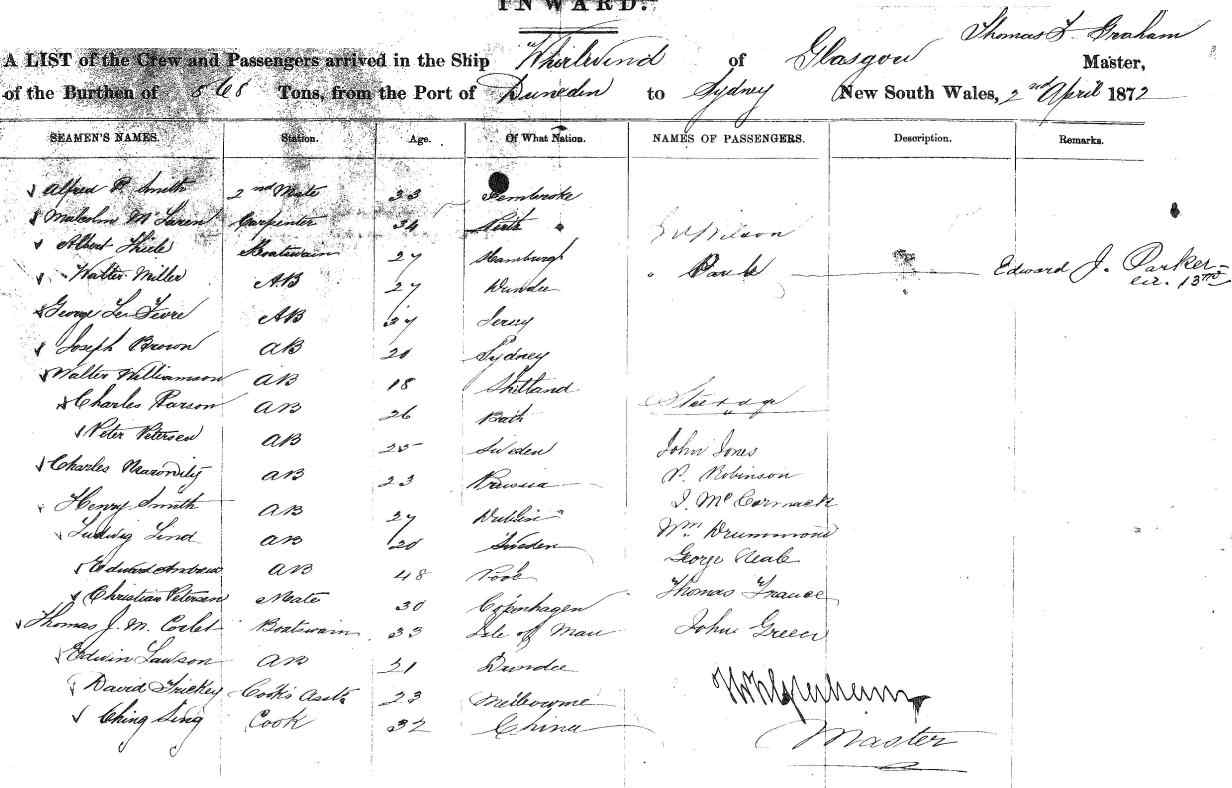 INWARD.
Thomas F. Graham
A LIST of the Crew and Passengers arrived in the Ship Whirlwind of Glasgow Master,
of the Burthen of Tons, from the Port of Dunedin to Sydney New South Wales, 2nd April 1872
SEAMEN'S NAMES. Station. Age. Of What Nation. NAMES OF PASSENGERS. Description. Remarks.
Alfred P. Smith 2nd Mate 33 Pembroke
Malcolm McLaren Carpenter 34 Perth Wilson
Albert Thiele Boatswain 27 Hamburg
Walter Miller AB 27 Dundee Edward J. Parker
George Le Fevre AB 37 Jersey
Joseph Brown AB Sydney
Walter Williamson AB 18 Shetland
Charles Parson AB 26 Bath Steerage
Peter Petersen AB 25 Sweden John Jones
Charles AB 23 Prussia P. Robinson
Henry Smith AB 27 Dublin J. McCormack
Ludwig Lind AB 20 Sweden Wm Drummond
Edward Andrews AB 48 Poole George Neale
Christian Petersen Mate 30 Copenhagen Thomas France
Thomas J. M. Corlet Boatswain 33 Isle of Man John Green
Edwin Lawson AB 21 Dundee
David Trickey Cook's Asst. 23 Melbourne
Ching Sing Cook 32 China
Master